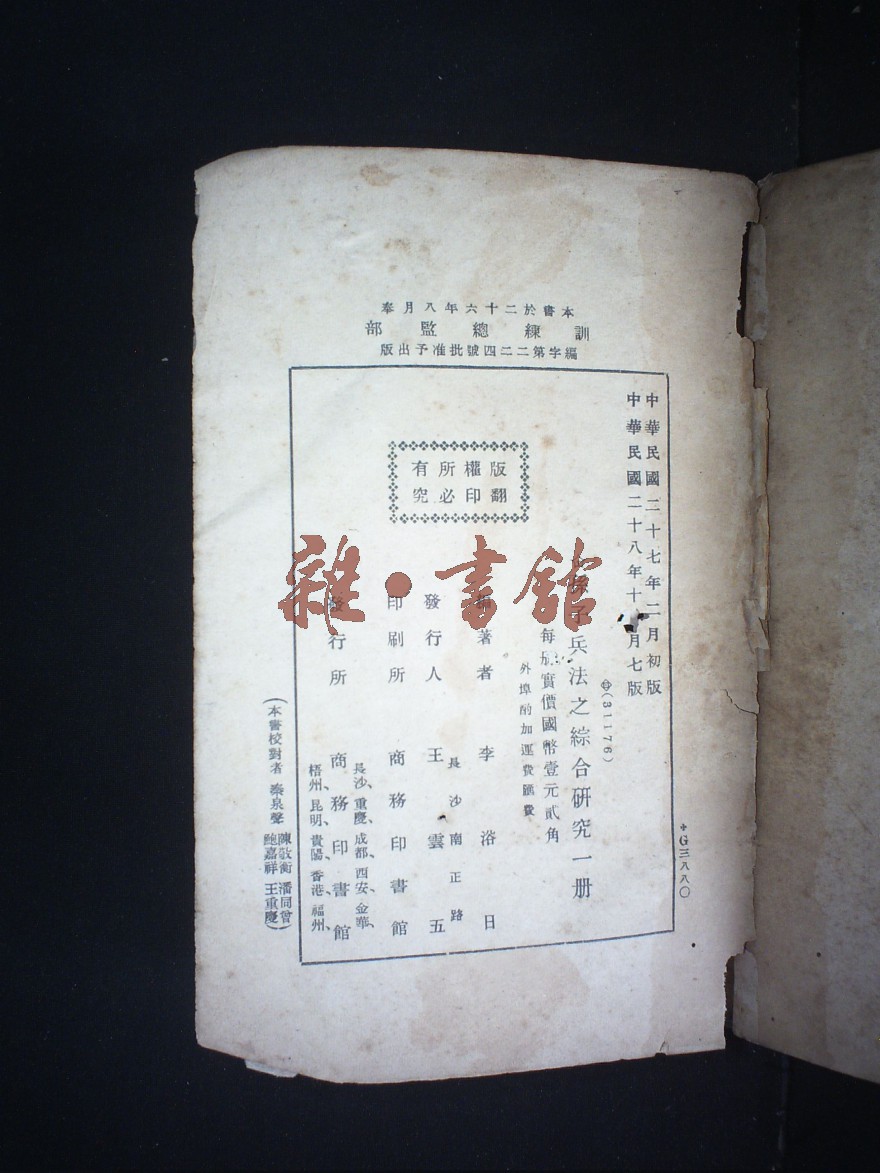 本書於二十六年八月奉
訓練總監部
編字第二二四號批准予出版
中華民國二十七年二月初版
中華民國二十八年十月七版
⊕(31176)
孫子兵法之綜合研究一册
每册實價國幣壹元貳角
外埠酌加運費匯費
版權所有
翻印必究
著者 李浴日
長沙南正路
發行人 王雲五
印刷所 商務印書館
長沙、重慶、成都、西安、金華、
發行所 商務印書館
梧州、昆明、貴陽、香港、福州、
(本書校對者 秦泉聲 陳敬衡 潘同曾 鮑嘉祥 王重慶)
G三八八〇
雜·書館